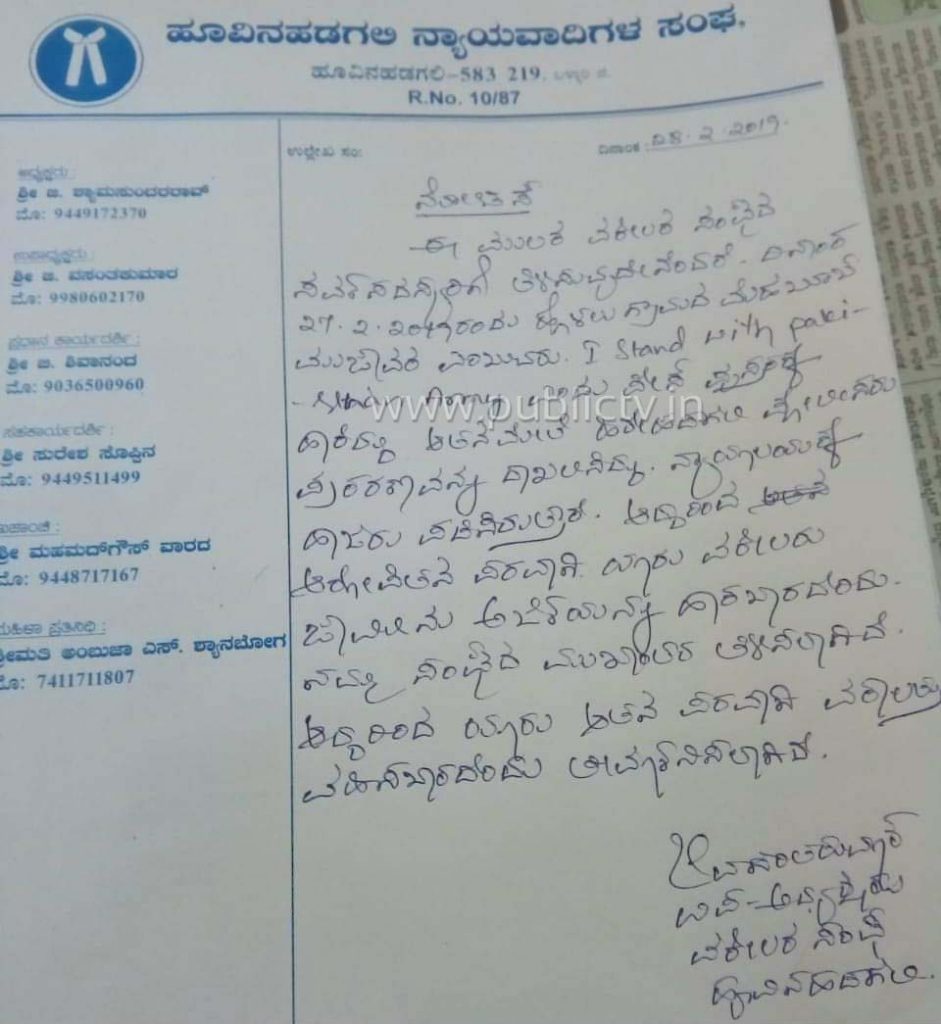 ಹೂವಿನಹಡಗಲಿ ನ್ಯಾಯವಾದಿಗಳ ಸಂಘ.
ಹೂವಿನಹಡಗಲಿ-583 219.
R.No. 10/87
ಉಲ್ಲೇಖ ಸಂ:
ದಿನಾಂಕ: 28.2.2019.
ಅಧ್ಯಕ್ಷರು :
ಶ್ರೀ ಜಿ. ಶ್ಯಾಮಸುಂದರರಾವ್
ಮೊ: 9449172370
ಉಪಾಧ್ಯಕ್ಷರು :
ಶ್ರೀ ಜಿ. ವಸಂತಕುಮಾರ
ಮೊ: 9980602170
ಪ್ರಧಾನ ಕಾರ್ಯದರ್ಶಿ :
ಶ್ರೀ ಜಿ. ಶಿವಾನಂದ
ಮೊ: 9036500960
ಸಹಕಾರ್ಯದರ್ಶಿ :
ಶ್ರೀ ಸುರೇಶ ಸೊಪ್ಪಿನ
ಮೊ: 9449511499
ಖಜಾಂಚಿ :
ಶ್ರೀ ಮಹಮದ್‌ಗೌಸ್ ವಾರದ
ಮೊ: 9448717167
ಮಹಿಳಾ ಪ್ರತಿನಿಧಿ :
ಶ್ರೀಮತಿ ಅಂಬುಜಾ ಎಸ್. ಶ್ಯಾನಬೋಗ
ಮೊ: 7411711807
ನೋಟಿಸ್
ಈ ಮೂಲಕ ವಕೀಲರ ಸಂಘದ
ಸರ್ವಸದಸ್ಯರಿಗೆ ತಿಳಿಸುವುದೇನೆಂದರೆ. ದಿನಾಂಕ
27.2.2019ರಂದು ಗ್ರಾಮದ ಮೆಹಬೂಬ್
I Stand with paki-
-stan Army
www.publictv.in
ಆತನ ಮೇಲೆ ಪೋಲೀಸರು
ಪ್ರಕರಣವನ್ನು ದಾಖಲಿಸಿದ್ದು. ನ್ಯಾಯಾಲಯಕ್ಕೆ
ಹಾಜರು ಪಡಿಸಿರುತ್ತಾರೆ. ಆದ್ದರಿಂದ
ಆರೋಪಿತನ ಪರವಾಗಿ ಯಾರು ವಕೀಲರು
ಜಾಮೀನು ಅರ್ಜಿಯನ್ನು ಹಾಕಬಾರದೆಂದು.
ನಮ್ಮ ಸಂಘದ ಮುಖಾಂತರ ತಿಳಿಸಲಾಗಿದೆ.
ಆದ್ದರಿಂದ ಯಾರು ಆತನ ಪರವಾಗಿ ವಕಾಲತ್ತು
ವಹಿಸಬಾರದೆಂದು ತೀರ್ಮಾನಿಸಲಾಗಿದೆ.
ವಸಂತಕುಮಾರ್
ಉಪ-ಅಧ್ಯಕ್ಷರು
ವಕೀಲರ ಸಂಘ
ಹೂವಿನಹಡಗಲಿ.